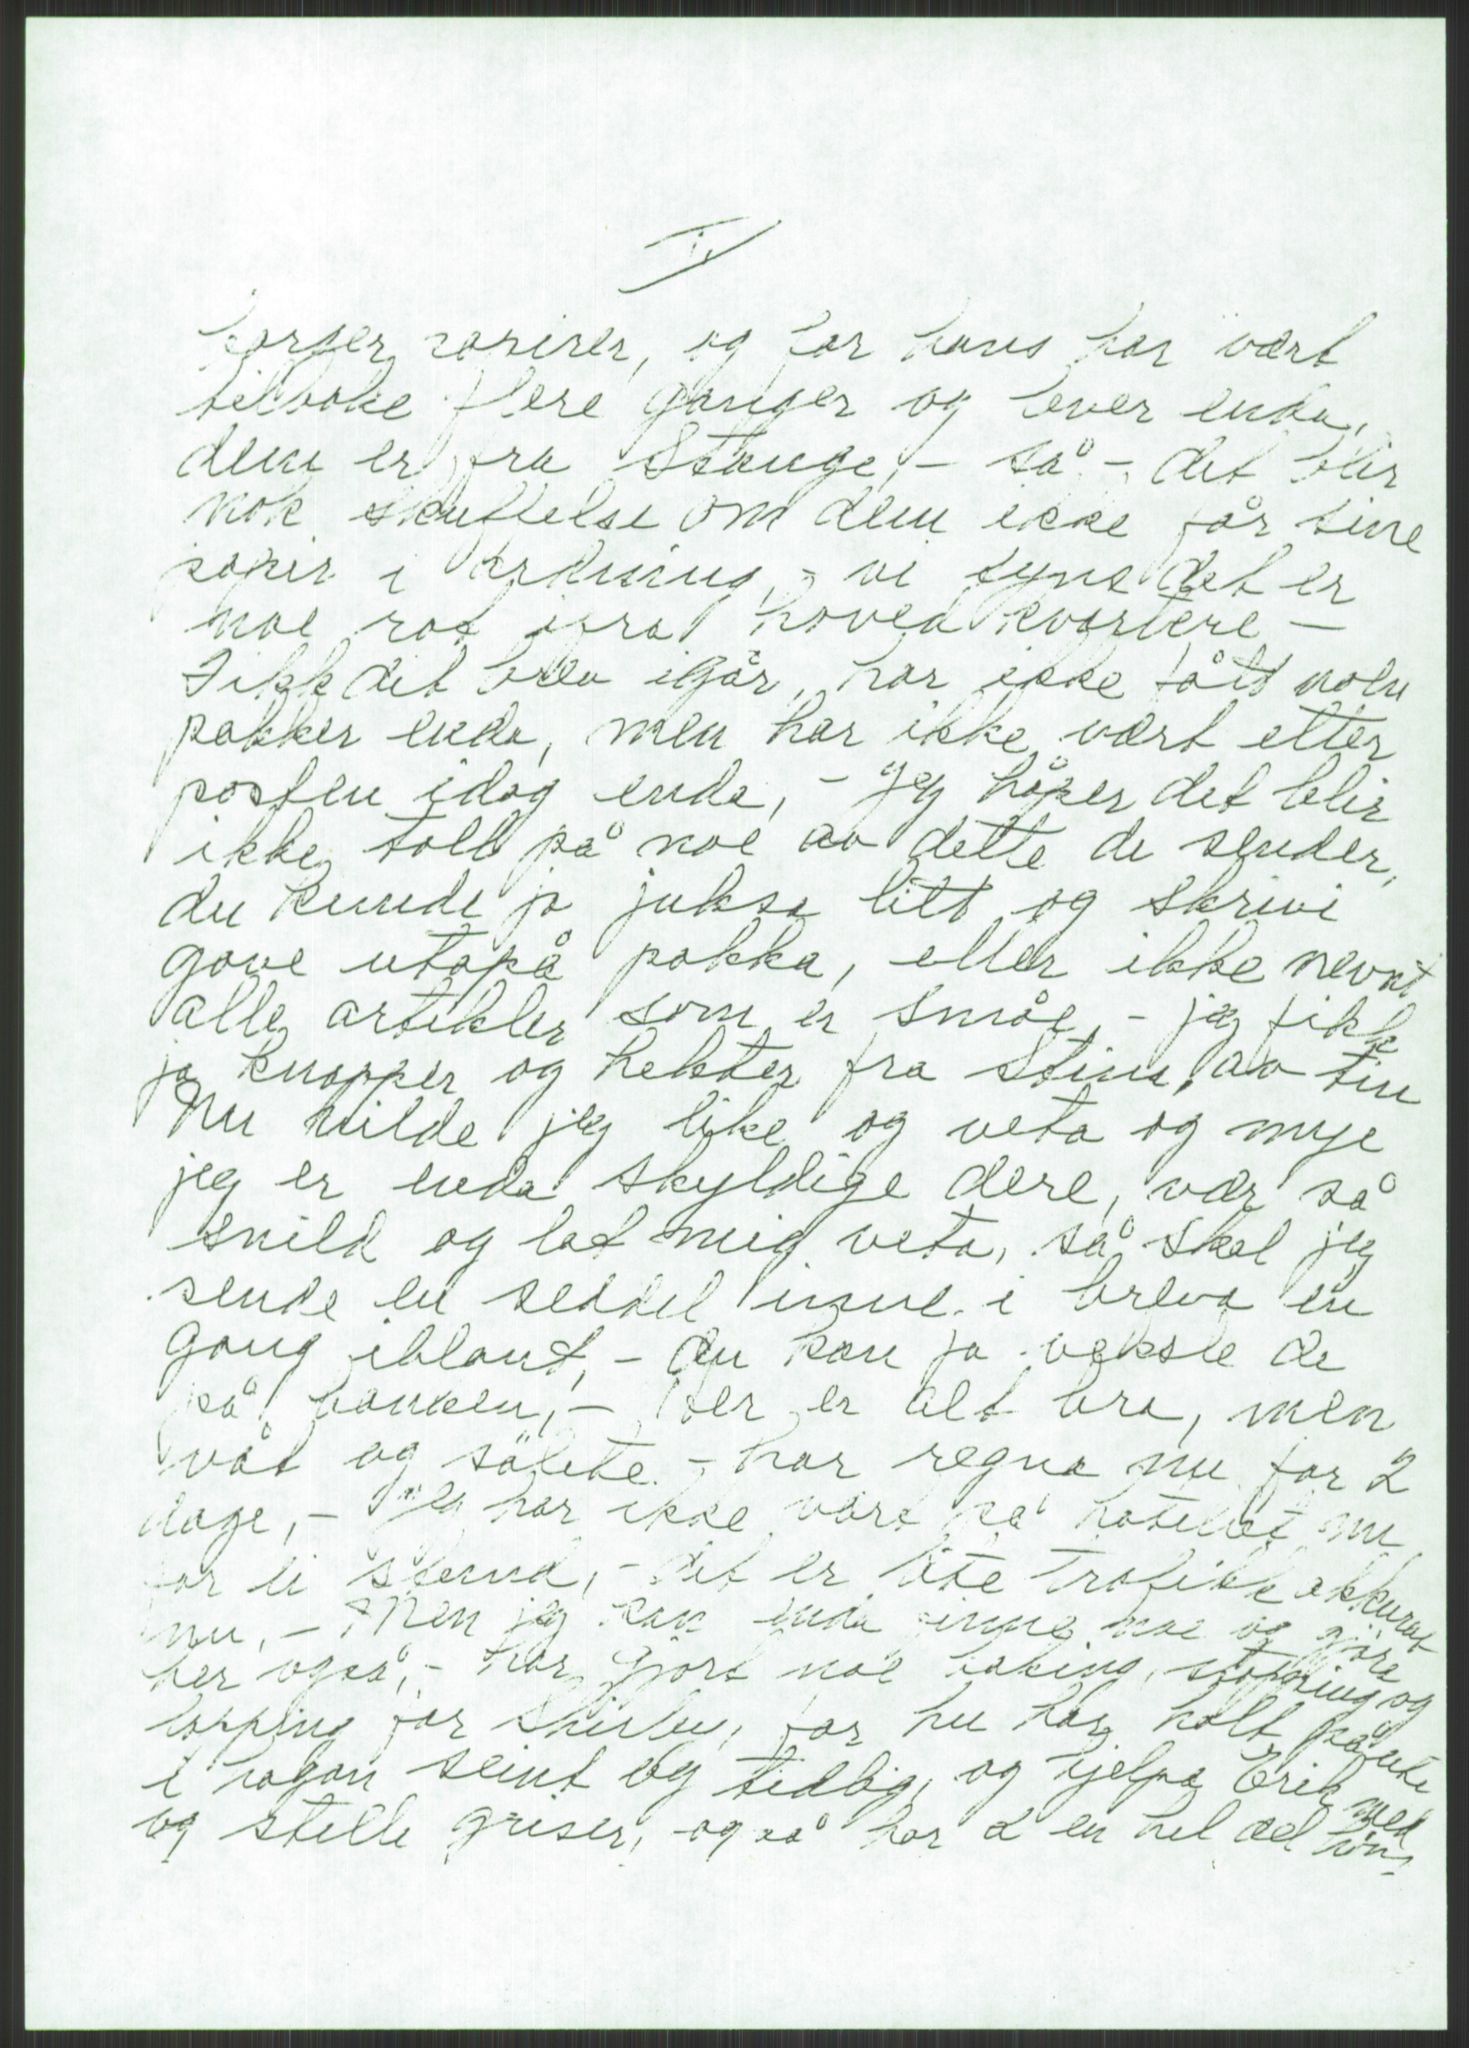 borger papirer, og far hans har vært
tilbake flere ganger og lever enda,
dem er fra Stange, – så – det blir
nok skuffelse om dem ikke får sine
papir i ordning, – vi syns det er
noe rot ifra hovedkvartere –
Fikk dit brev igår, har ikke fått noen
pakker enda, men har ikke vært etter
posten idag enda, – Jeg håper det blir
ikke toll på noe av dette de sender,
du kunde jo juksa litt og skrivi
gave utapå pakka, eller ikke nevnt
alle artikler som er småe, – jeg fikk
jo knapper og hekter fra Stina, av tin
Nu vilde jeg like og veta og mye
jeg er enda skyldige dere, vær så
snild og lat mig veta, så skal jeg
sende en seddel inne i breva en
gang iblant, – du kan ja veksle de
på banken, – Her er alt bra, men
våt og sölete – har regna nu for 2
dage, – Jeg har ikke vært på hotellet nu
for ei stund, – det er lite trafikk akkurat
nu, – Men jeg kan enda finne noe og gjöra
her også, – har gjort noe baking, stopping og
lapping for Shirley, for hu har holt på ute
i hagan seint og tidlig, og hjelpe Erik med
og stelle griser, også har 2 en hel del höns